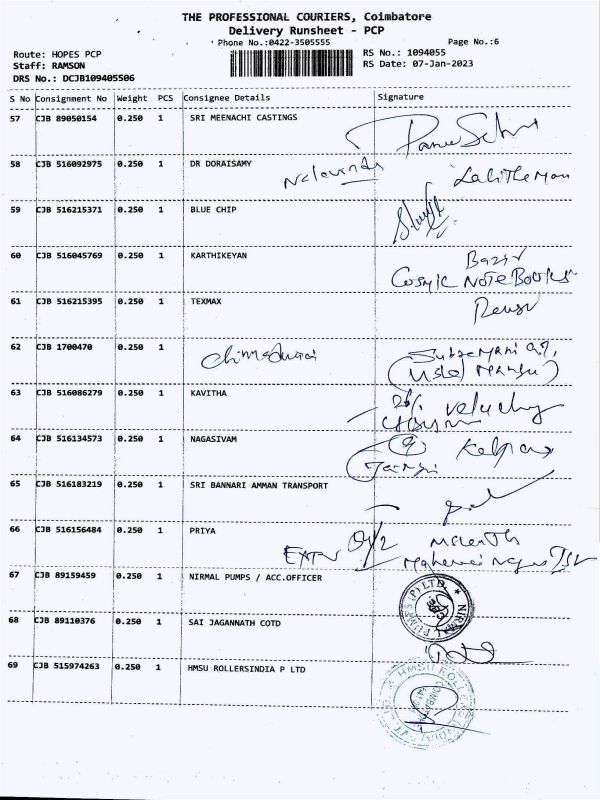 THE PROFESSIONAL COURIERS, Coimbatore
Delivery Runsheet - PCP
Phone No.:0422-3505555
Page No.:6
Route: HOPES PCP
RS No.: 1094055
Staff: RAMSON
RS Date: 07-Jan-2023
DRS No.: DCJB109405506
S No Consignment No Weight PCS Consignee Details Signature
57 CJB 89050154 0.250 1 SRI MEENACHI CASTINGS
58 CJB 516092975 0.250 1 DR DORAISAMY
59 CJB 516215371 0.250 1 BLUE CHIP
60 CJB 516045769 0.250 1 KARTHIKEYAN
Cosmic NoteBooks
61 CJB 516215395 0.250 1 TEXMAX
62 CJB 1700470 0.250 1
63 CJB 516086279 0.250 1 KAVITHA
64 CJB 516134573 0.250 1 NAGASIVAM
65 CJB 516183219 0.250 1 SRI BANNARI AMMAN TRANSPORT
66 CJB 516156484 0.250 1 PRIYA
67 CJB 89159459 0.250 1 NIRMAL PUMPS / ACC.OFFICER
NIRMAL PUMPS (P) LTD.
68 CJB 89110376 0.250 1 SAI JAGANNATH COTD
69 CJB 515974263 0.250 1 HMSU ROLLERSINDIA P LTD